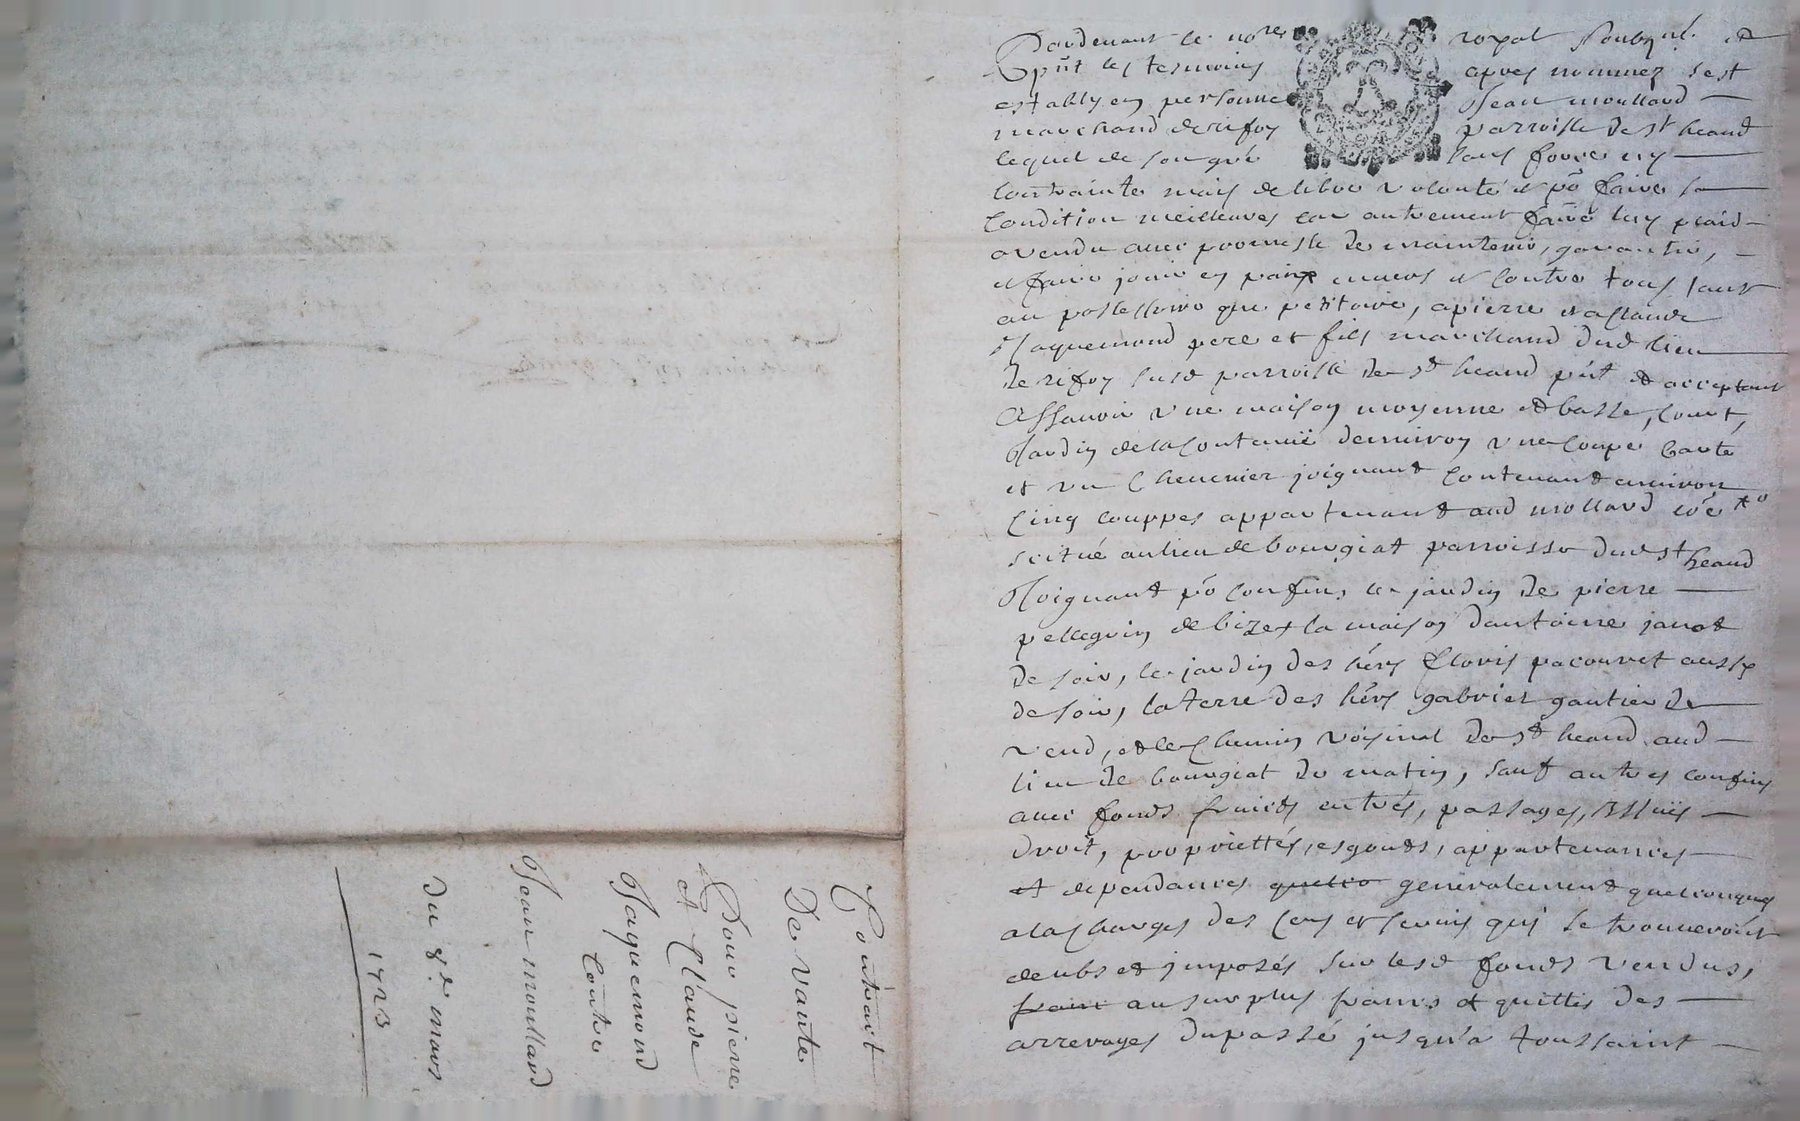 Pardevant le nore royal soubzné. et
pñt les tesmoins apres nommez s'est
estably en personne Jean moullard
marchand de rifoy parroisse de st heand
lequel de son gré sans force ny
contrainte mais de libre volonté et pō faire sa
condition meilleures car autrement faire luy plaid
a vendu avec promesse de maintenir, garantir,
et faire jouir en paix envers et contre tous tant
au possessoire que petitoire, a pierre et a claude
Jaquemond pere et fils marchand dud lieu
de rifoy susd parroisse de st heand pñt et acceptant
Assavoir une maison moyenne et basse, court,
Jardin de la contenuë denviron une coupe
et un chenevier joignant contenant environ
cinq couppes appartenant aud mollard
scitué au lieu de bourgiat parroisse dud st heand
Joignant pō confins le jardin de pierre
pellegrin de bize, la maison dantoine janot
de soir, le jardin des hérs Floris pacouret aussy
de soir, la terre des hérs gabriel gautier de
vend, et le chemin voisinal de st heand aud
lieu de bourgiat de matin, sauf autres confins
avec fonds fruicts entrés, passages, issuës
droit, propriettés, esgouts, appartenances
et dependances generalement quelconques
a la charges des cens et servis quy se trouveront
deubs et jmposés sur lesd fonds vendus,
franc au surplus francs et quittes des
arrerages du passé jusqu'a toussaint
Contrait
De Vante
Pour pierre
et Claude
Jaquemond
Contre
Jean moullard
du 8e. mars
1723